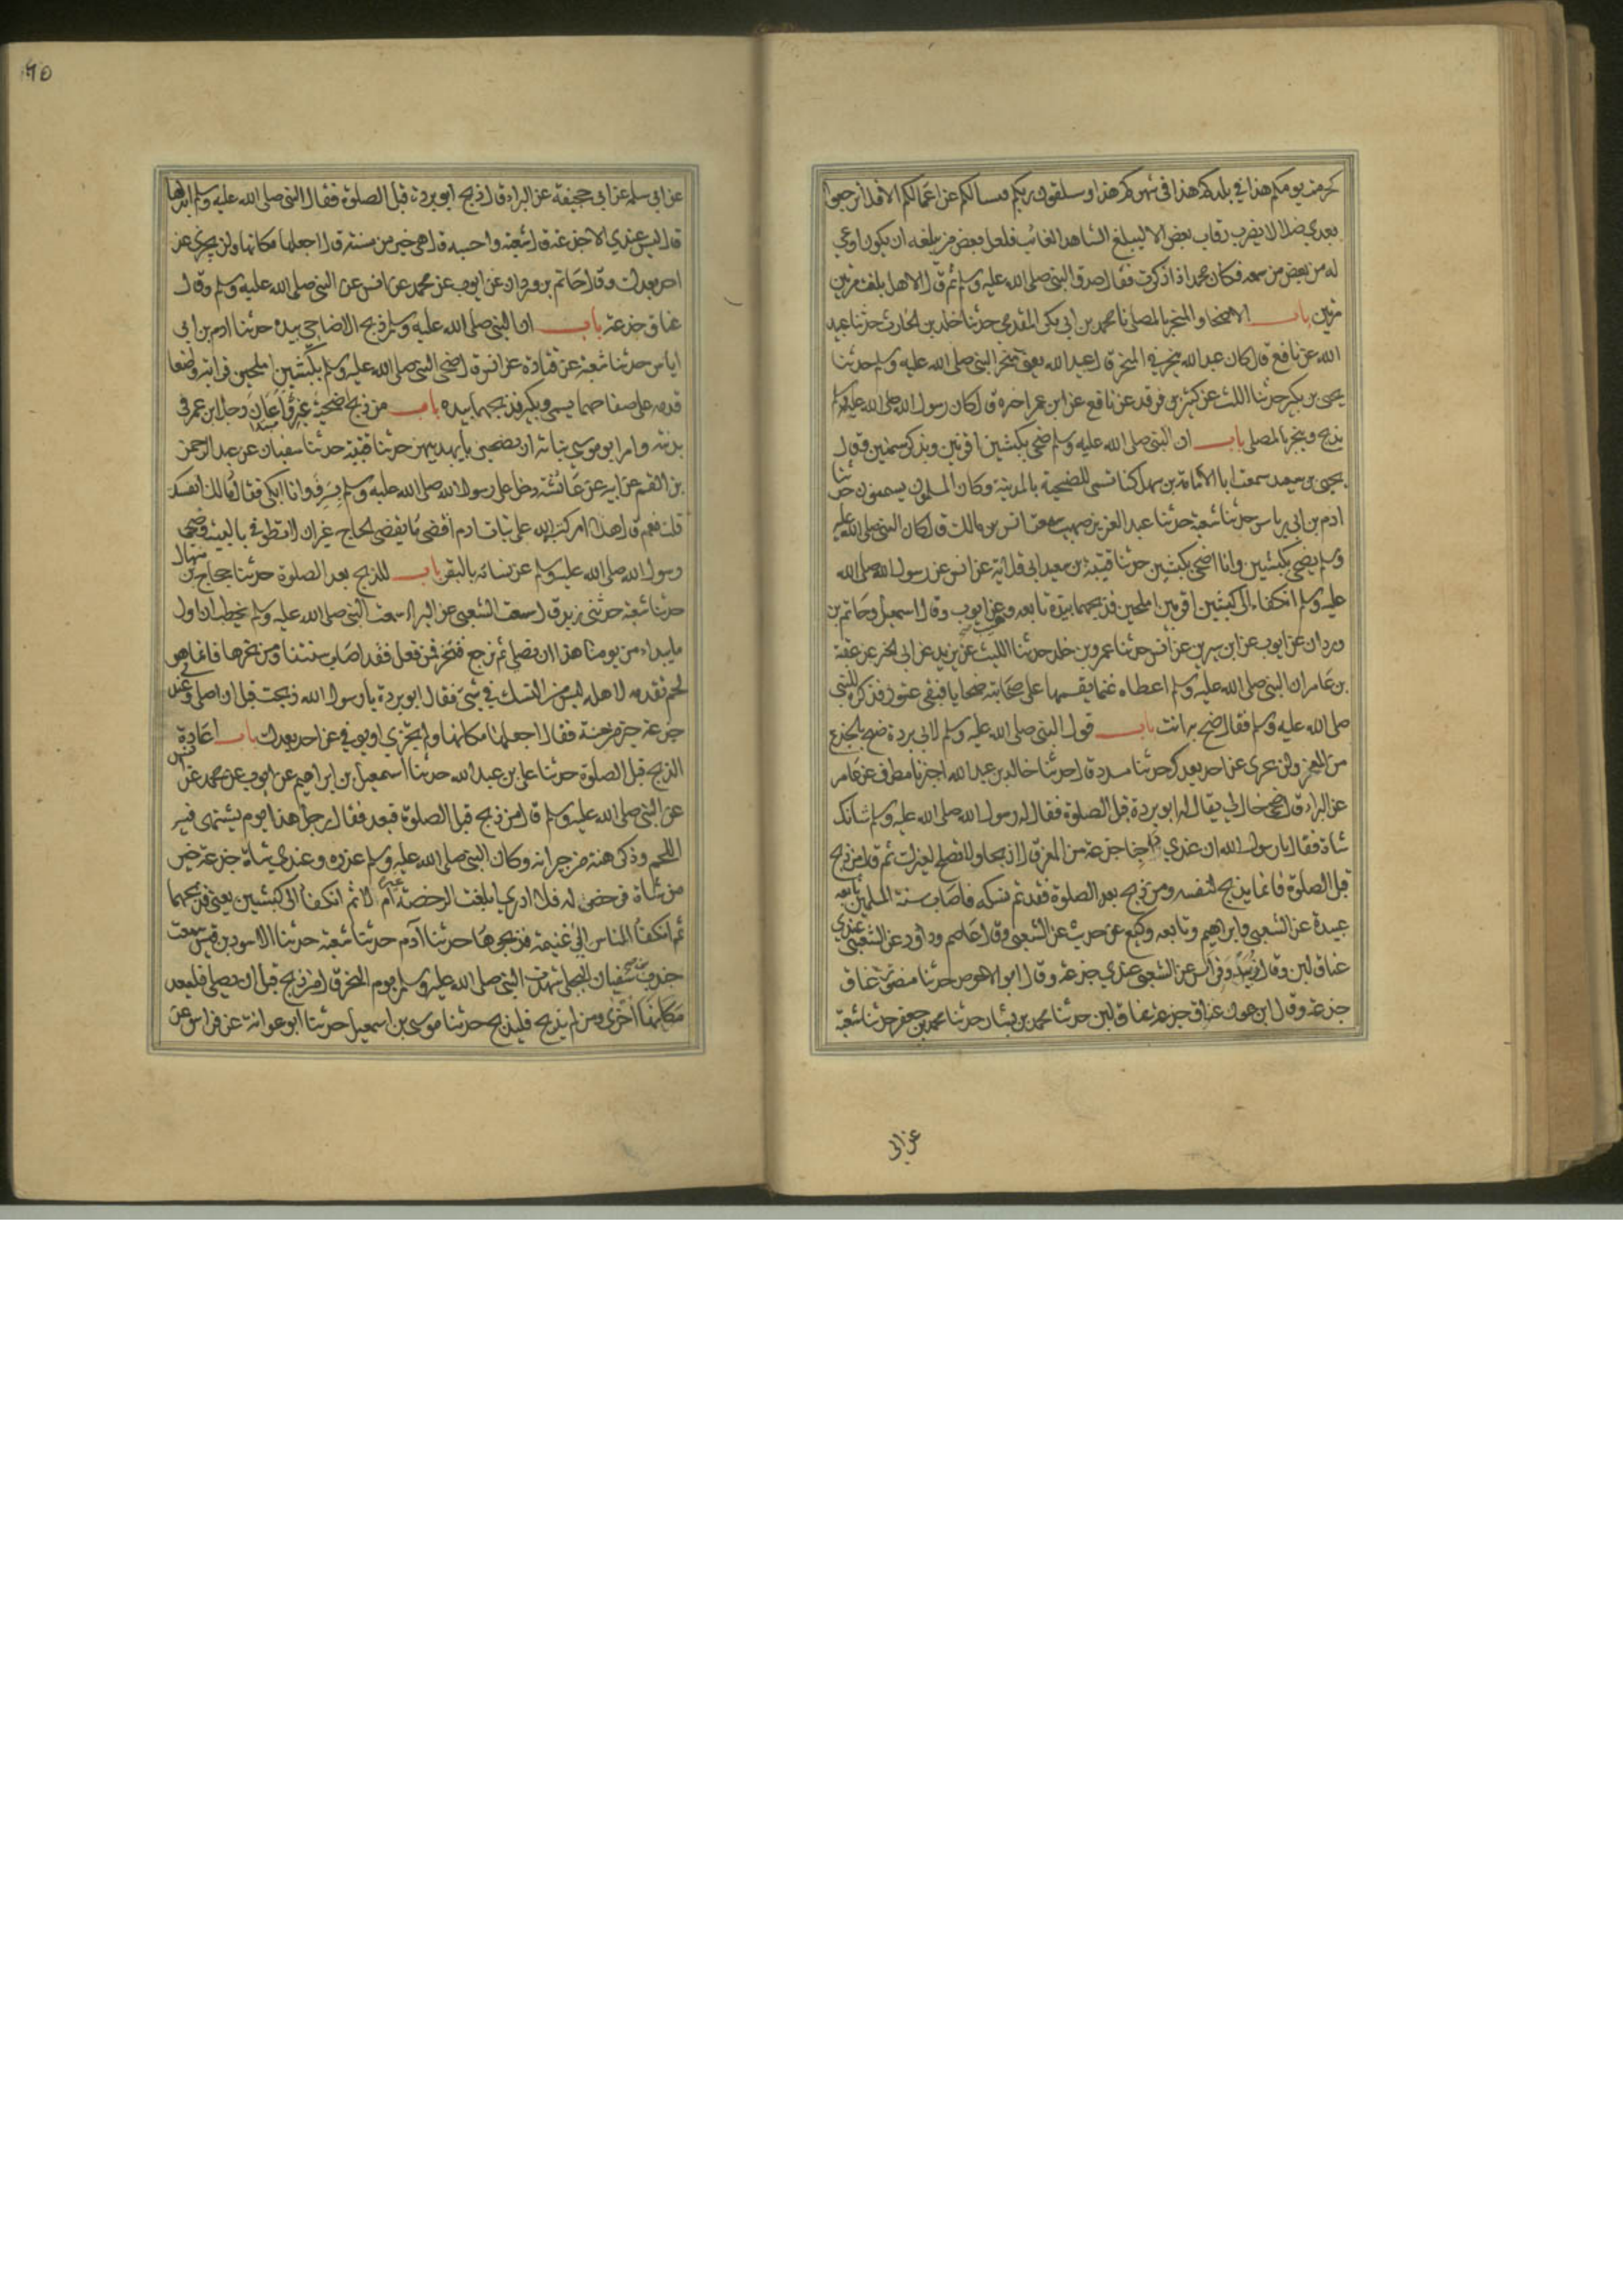 كحرمة يومكم هذا في بلدكم هذا في شهركم هذا وستلقون ربكم فيسألكم عن اعمالكم الا فلا ترجعوا
بعدي ضلالا يضرب رقاب بعض الا ليبلغ الشاهد الغائب فلعل بعض من يبلغه ان يكون اوعى
له من بعض من سمعه فكان محمد اذا ذكره فقال صدق النبي صلى الله عليه وسلم ثم قال الا هل بلغت مرتين
مرتين باب الاضحى والمنحر بالمصلى نا محمد بن ابي بكر المقدمي حدثنا خلد بن الحارث حدثنا عبيد
الله عن نافع قال كان عبد الله ينحر في المنحر قال عبيد الله يعني منحر النبي صلى الله عليه وسلم حدثنا
يحيى بن بكير حدثنا الليث عن كثير بن فرقد عن نافع عن ابن عمر اخبره قال كان رسول الله صلى الله عليه وسلم
يذبح وينحر بالمصلى باب ان النبي صلى الله عليه وسلم ضحى بكبشين اقرنين ويذكر سمينين وقال
يحيى بن سعيد سمعت ابا امامة بن سهل كنا نسمن الاضحية بالمدينة وكان المسلمون يسمنون حدثنا
ادم بن ابي اياس حدثنا شعبة حدثنا عبد العزيز بن صهيب سمعت انس بن مالك قال كان النبي صلى الله عليه
وسلم يضحي بكبشين وانا اضحي بكبشين حدثنا قتيبة بن سعيد ابي قلابة عن انس عن رسول الله صلى الله
عليه وسلم انكفاء الى كبشين اقرنين املحين فذبحهما بيده تابعه وهيب عن ايوب وقال اسمعيل وحاتم بن
وردان عن ايوب عن ابن سيرين عن انس حدثنا عمرو بن خلد حدثنا الليث عن يزيد عن ابي الخير عن عقبة
بن عامر ان النبي صلى الله عليه وسلم اعطاه غنما يقسمها على صحابته ضحايا فبقي عتود فذكره للنبي
صلى الله عليه وسلم فقال ضح به انت باب قول النبي صلى الله عليه وسلم لابي بردة ضح بالجذع
من المعز ولن تجزى عن احد بعدك حدثنا مسدد قال حدثنا خالد بن عبد الله اخبرنا مطرف عن عامر
عن البراء قال ضحى خال لي يقال له ابو بردة قبل الصلوة فقال له رسول الله صلى الله عليه وسلم شاتك
شاة فقال يا رسول الله ان عندي جذعة من المعز قال اذبحها ولا تصلح لغيرك ثم قال من ذبح
قبل الصلوة فانما يذبح لنفسه ومن ذبح بعد الصلوة فقد تم نسكه فاصاب سنة المسلمين تابعه
عبيدة عن الشعبي وابراهيم وتابعه وكيع عن حريث عن الشعبي وقال عاصم وداود عن الشعبي عندي
عناق لبن وقال زبيد وفراس عن الشعبي عندي جذعة وقال ابو الاحوص حدثنا منصور عناق
جذعة وقال ابن عون عناق جذعة عناق لبن حدثنا محمد بن بشار حدثنا محمد بن جعفر حدثنا شعبة
عن ابي
٦٥
عن ابي سلمة عن ابي جحيفة عن البراء قال ذبح ابو بردة قبل الصلوة فقال النبي صلى الله عليه وسلم ابدلها
قال ليس عندي الا جذعة قال شعبة واحسبه قال هي خير من مسنة قال اجعلها مكانها ولن يجزى عن
احد بعدك وقال حاتم بن وردان عن ايوب عن محمد عن انس عن النبي صلى الله عليه وسلم وقال
عناق جذعة باب ان النبي صلى الله عليه وسلم ذبح الاضاحي بيده حدثنا ادم بن ابي
اياس حدثنا شعبة عن قتادة عن انس قال ضحى النبي صلى الله عليه وسلم بكبشين املحين فرايته واضعا
قدمه على صفاحهما يسمي ويكبر فذبحهما بيده باب من ذبح ضحية غيره واعان رجل ابن عمر في
بدنته وامر ابو موسى بناته ان يضحين بايديهن حدثنا قتيبة حدثنا سفيان عن عبد الرحمن
بن القسم عن ابيه عن عائشة دخل على رسول الله صلى الله عليه وسلم بسرف وانا ابكي فقال مالك انفست
قلت نعم قال هذا امر كتبه الله على بنات ادم اقضي ما يقضي الحاج غير ان لا تطوفي بالبيت وضحى
رسول الله صلى الله عليه وسلم عن نسائه بالبقر باب للذبح بعد الصلوة حدثنا حجاج بن منهال
حدثنا شعبة حدثني زبيد قال سمعت الشعبي عن البراء سمعت النبي صلى الله عليه وسلم يخطب ان اول
ما يبداء من يومنا هذا ان نصلي ثم نرجع فننحر فمن فعل فقد اصاب سنتنا ومن نحرها فانما هو
لحم يقدمه لاهله ليس من النسك في شيء فقال ابو بردة يا رسول الله ذبحت قبل ان اصلي وعندي
جذعة خير من مسنة فقال اجعلها مكانها ولم تجزي او يوفي عن احد بعدك باب اعادة
الذبح قبل الصلوة حدثنا علي بن عبد الله حدثنا اسمعيل بن ابراهيم عن ايوب عن محمد عن انس
عن النبي صلى الله عليه وسلم قال من ذبح قبل الصلوة فيعد فقال رجل هذا يوم يشتهى فيه
اللحم وذكر هنة من جيرانه وكان النبي صلى الله عليه وسلم عذره وعندي شاة جذعة خير
من شاة فرخص له فلا ادري ابلغت الرخصة ام لا ثم انكفأ الى كبشين يعني فذبحهما
ثم انكفأ الناس الى غنيمة فذبحوها حدثنا آدم حدثنا شعبة حدثنا الاسود بن قيس سمعت
جندب بن سفيان البجلي شهدت النبي صلى الله عليه وسلم يوم النحر قال من ذبح قبل ان يصلي فليعد
مكانها اخرى ومن لم يذبح فليذبح حدثنا موسى بن اسمعيل حدثنا ابو عوانة عن فراس عن